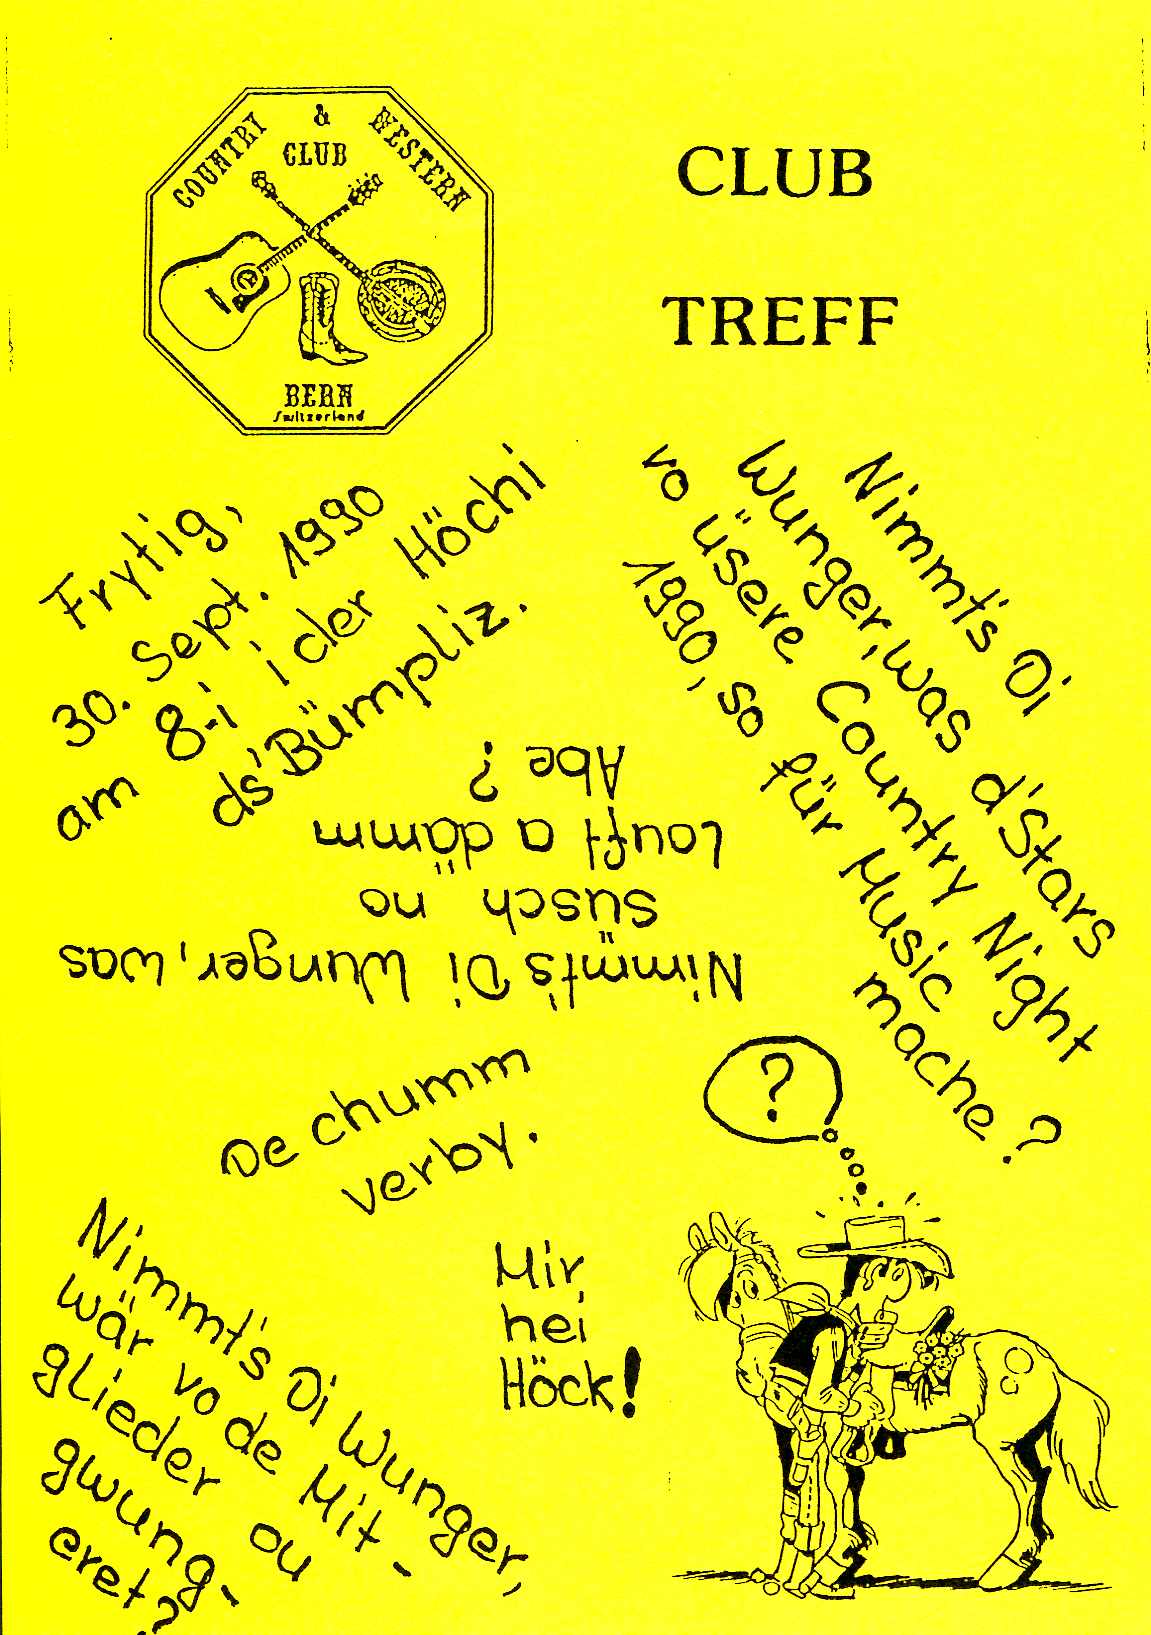 COUNTRY & WESTERN
CLUB
BERN
Switzerland
CLUB
TREFF
Frytig,
30. Sept. 1990
am 8-i i der Höchi
ds'Bümpliz.
Nimmt's Di
Wunger, was d'Stars
vo üsere Country Night
1990, so für Music
mache?
Nimmt's Di Wunger, was
süsch no
Louft a dämm
Abe?
De chumm
verby.
Nimmt's Di Wunger,
wär vo de Mit-
glieder ou
gwung-
eret?
Mir
hei
Höck!
?